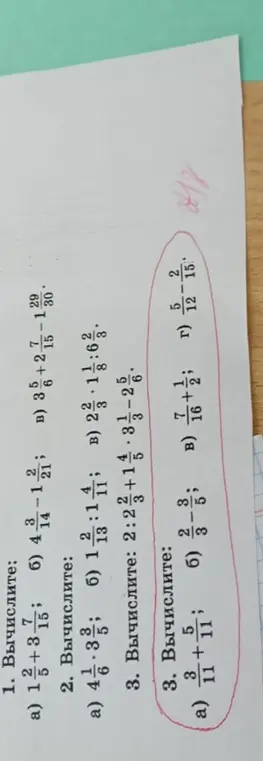 1. Вычислите:
а) 1 2/5 + 3 7/15; б) 4 3/14 − 1 2/21; в) 3 5/6 + 2 7/15 − 1 29/30.
2. Вычислите:
а) 4 1/6 · 3 3/5; б) 1 2/13 : 1 4/11; в) 2 2/3 · 1 1/8 : 6 2/3.
3. Вычислите: 2 : 2 2/3 + 1 4/5 · 3 1/3 − 2 5/6.
3. Вычислите:
а) 3/11 + 5/11; б) 2/3 − 3/5; в) 7/16 + 1/2; г) 5/12 − 2/15.